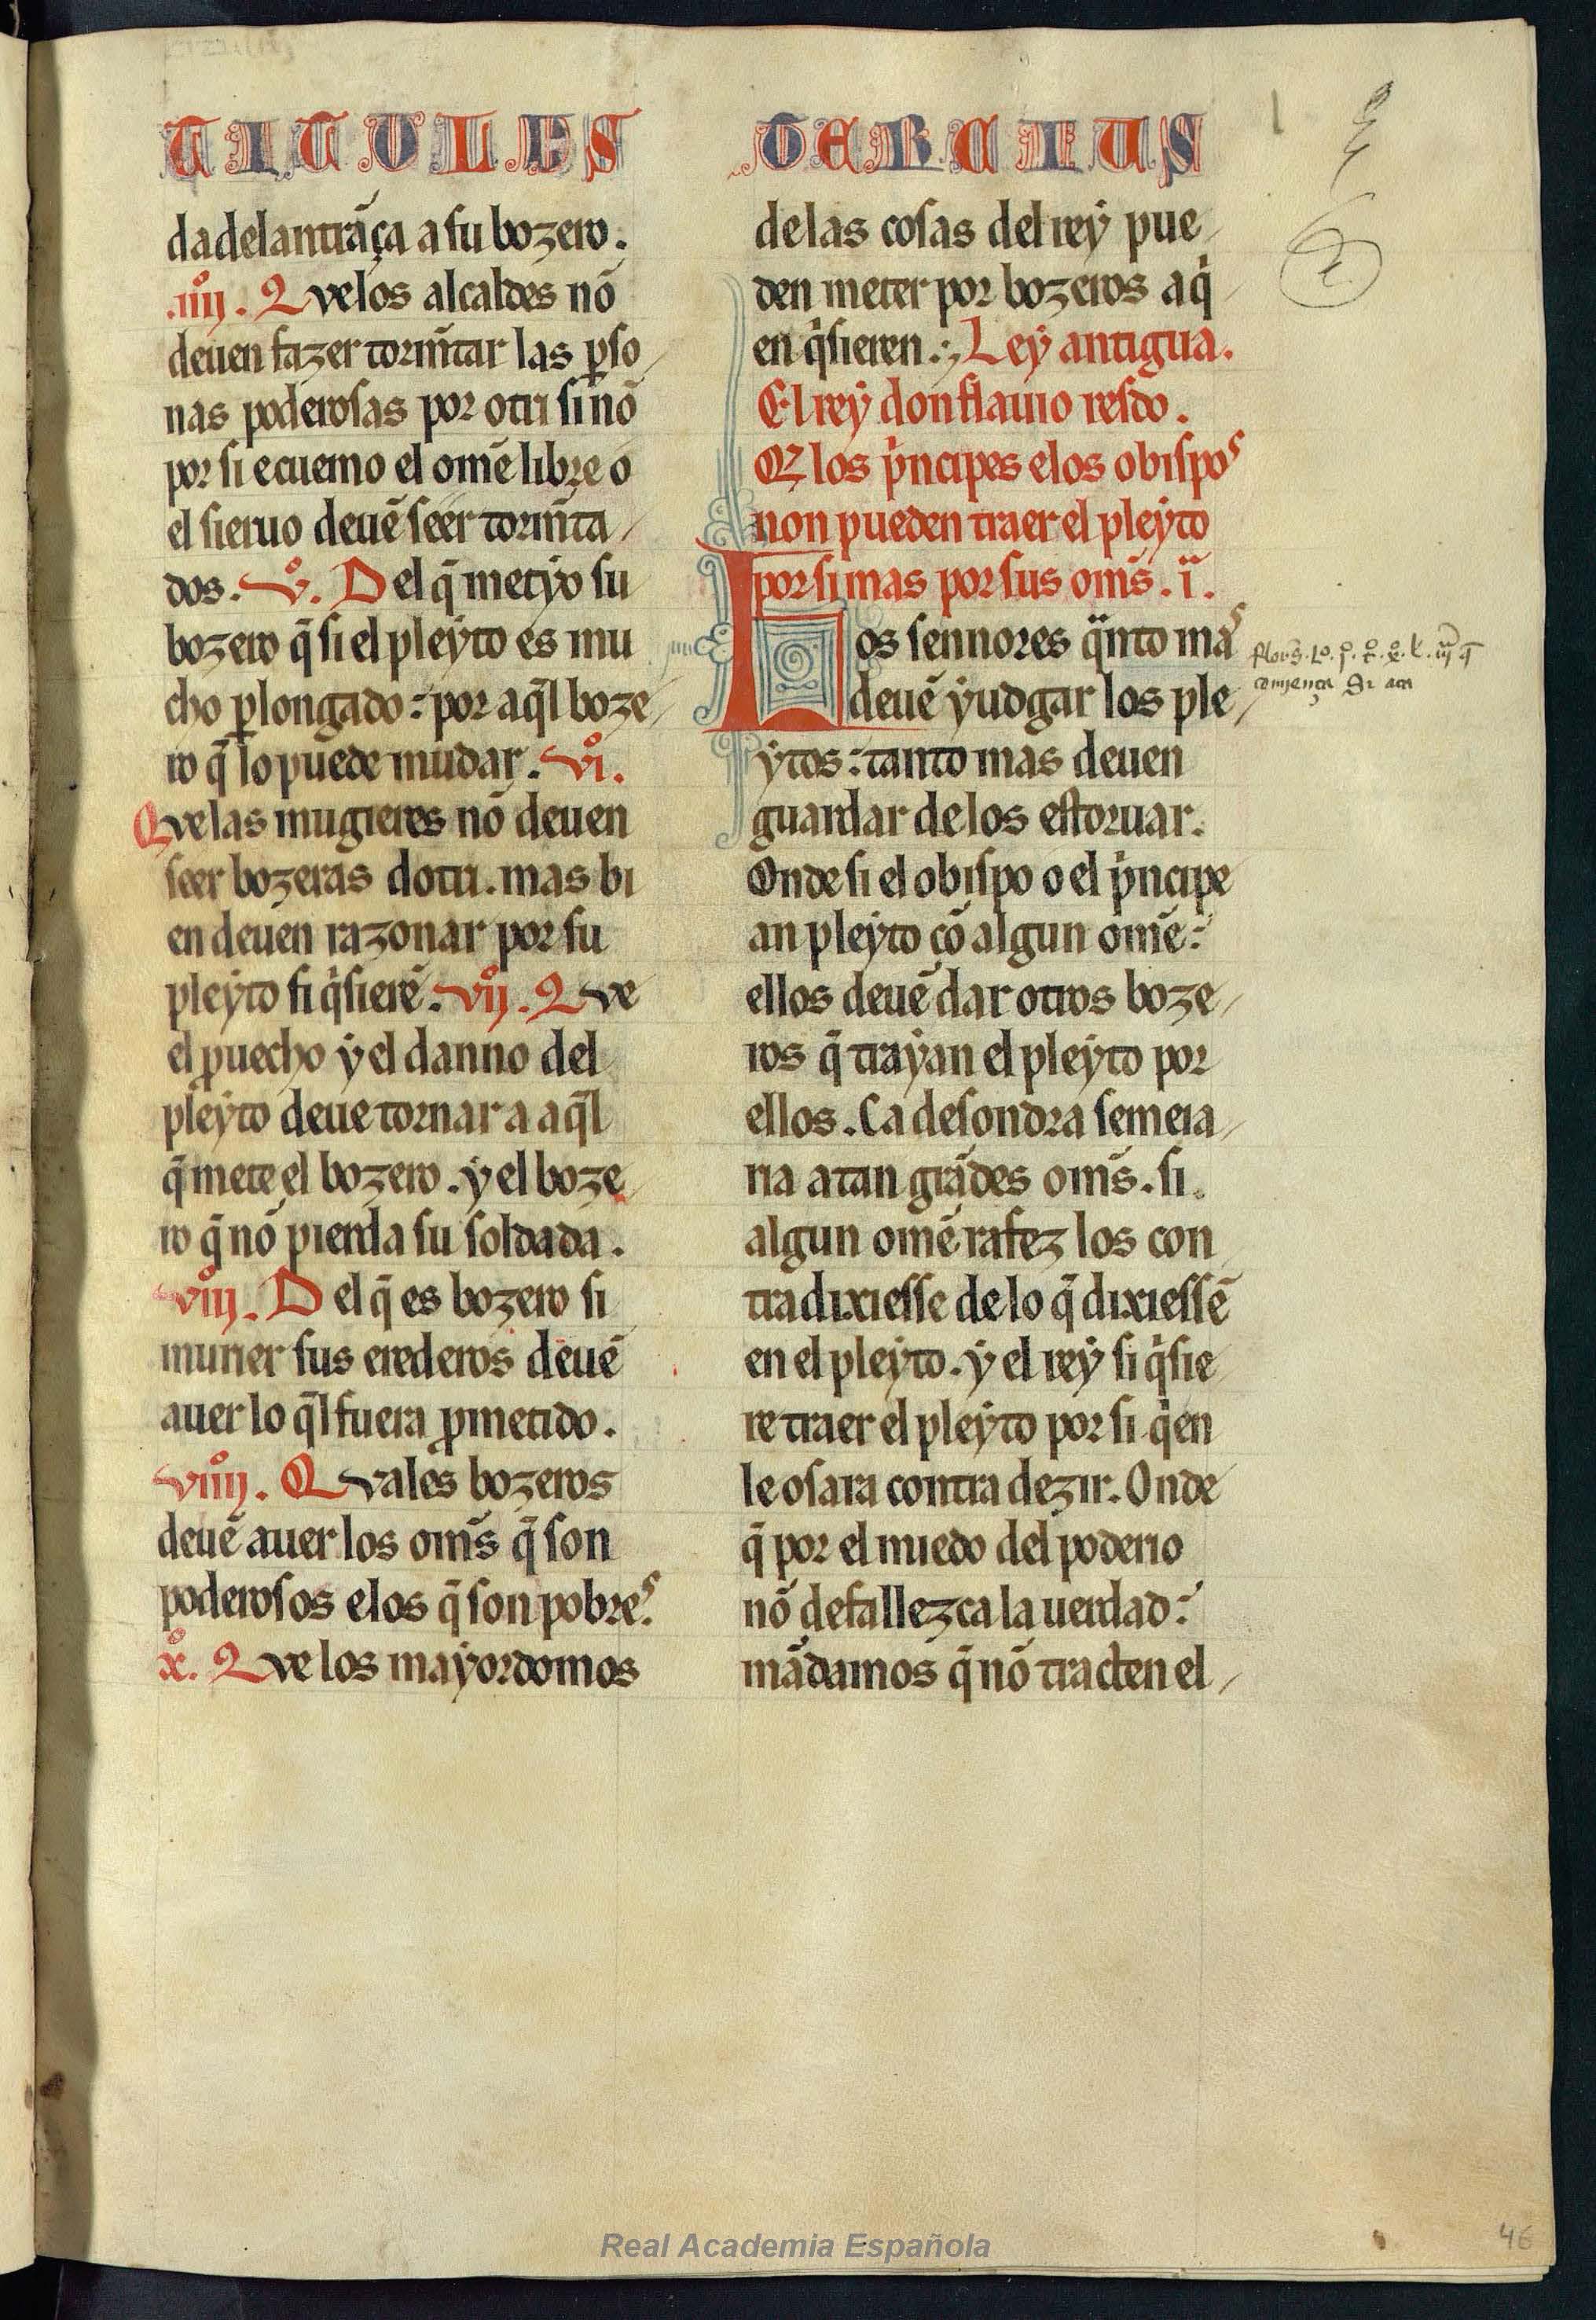 TITULUS TERCIUS
da delantrãça a su bozero.
.iiijº. Que los alcaldes nõ
deuen fazer torm̃tar las ꝑso
nas poderosas por otri si nõ
por si e cuemo el omẽ libre o
el sieruo deuẽ seer torm̃ta
dos. vº. Del q̃ metyo su
bozero q̃ si el pleyto es mu
cho ꝑlongado: por aq̃l boze
ro q̃ lo puede mudar. viº.
Que las mugieres nõ deuen
seer bozeras dotri. mas bi
en deuen razonar por su
pleyto si q̇sierẽ. vijº. Que
el ꝓuecho y el danno del
pleyto deue tornar a aq̃l
q̃ mete el bozero. y el boze
ro q̃ nõ pierda su soldada.
viijº. Del q̃ es bozero si
murier sus erederos deuẽ
auer lo q̃l fuera ꝓmetido.
viiijº. Quales bozeros
deuẽ auer los om̃s q̃ son
poderosos e los q̃ son pobres.
xº. Que los mayordomos
de las cosas del rey pue
den meter por bozeros a q̇
en q̇sieren. Ley antigua.
El rey don flauio resdo.
Q̃ los ṗncipes e los obispos
non pueden traer el pleyto
por si mas por sus om̃s. iª.
Los sennores q̈nto mas
deuẽ yudgar los ple
ytos: tanto mas deuen
guardar de los estoruar.
Onde si el obispo o el ṗncipe
an pleyto cõ algun omẽ:
ellos deuẽ dar otros boze
ros q̃ trayan el pleyto por
ellos. Ca desondra semeia
ria a tan grãdes om̃s. si
algun omẽ rafez los con
tradixiesse de lo q̃ dixiessẽ
en el pleyto. y el rey si q̇sie
re traer el pleyto por si q̇en
le osara contra dezir. Onde
q̃ por el miedo del poderio
nõ defallezca la uerdad:
mãdamos q̃ nõ tracten el
comjença
46
Real Academia Española